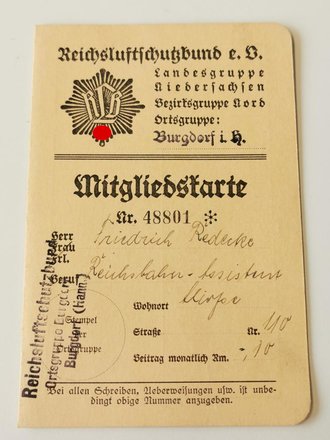 Reichsluftschutzbund e. V.
RLB
Landesgruppe
Niedersachsen
Bezirksgruppe Nord
Ortsgruppe:
Burgdorf i. H.
Mitgliedskarte
Nr. 48801 ✻
Herr
Frau
Frl.
Friedrich
Beruf Reichsbahn-Assistent
Wohnort
Straße Nr. 110
Beitrag monatlich Rm. -,10
Stempel
der
Ortsgruppe
Reichsluftschutzbund
Ortsgruppe Burgdorf
Burgdorf (Hann.)
Bei allen Schreiben, Ueberweisungen usw. ist unbe-
dingt obige Nummer anzugeben.